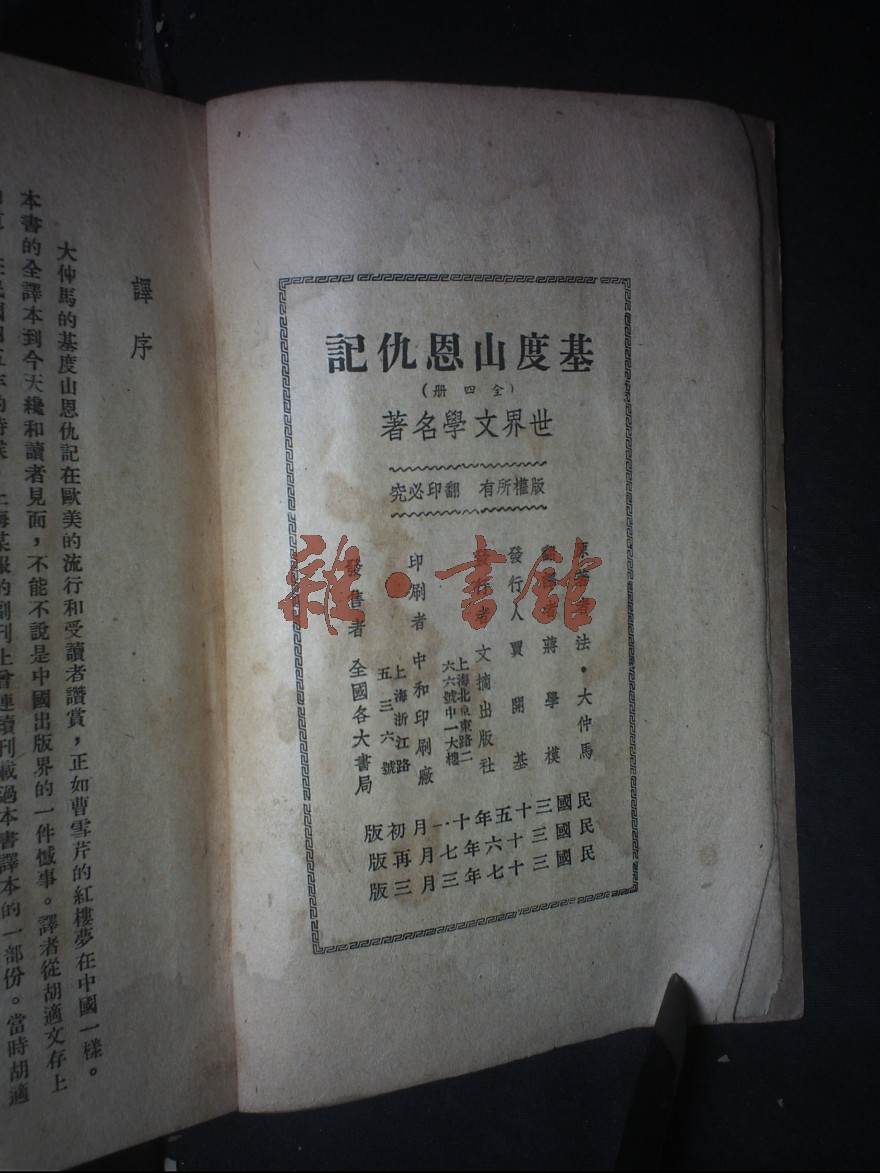 基度山恩仇記
(全四冊)
世界文學名著
版權所有 翻印必究
原著者 法·大仲馬
翻譯者 蔣學模
發行人 賈開基
發行者 文摘出版社
上海北京東路二
六六號中一大樓
印刷者 中和印刷廠
上海浙江路
五三六號
發售者 全國各大書局
民國三十五年十一月初版
民國三十六年七月再版
民國三十七年三月三版
譯序
大仲馬的基度山恩仇記在歐美的流行和受讀者讚賞，正如曹雪芹的紅樓夢在中國一樣。
本書的全譯本到今天纔和讀者見面，不能不說是中國出版界的一件憾事。譯者從胡適文存上
上海某報的副刊上曾連續刊載過本書譯本的一部份。當時胡適
雜·書館